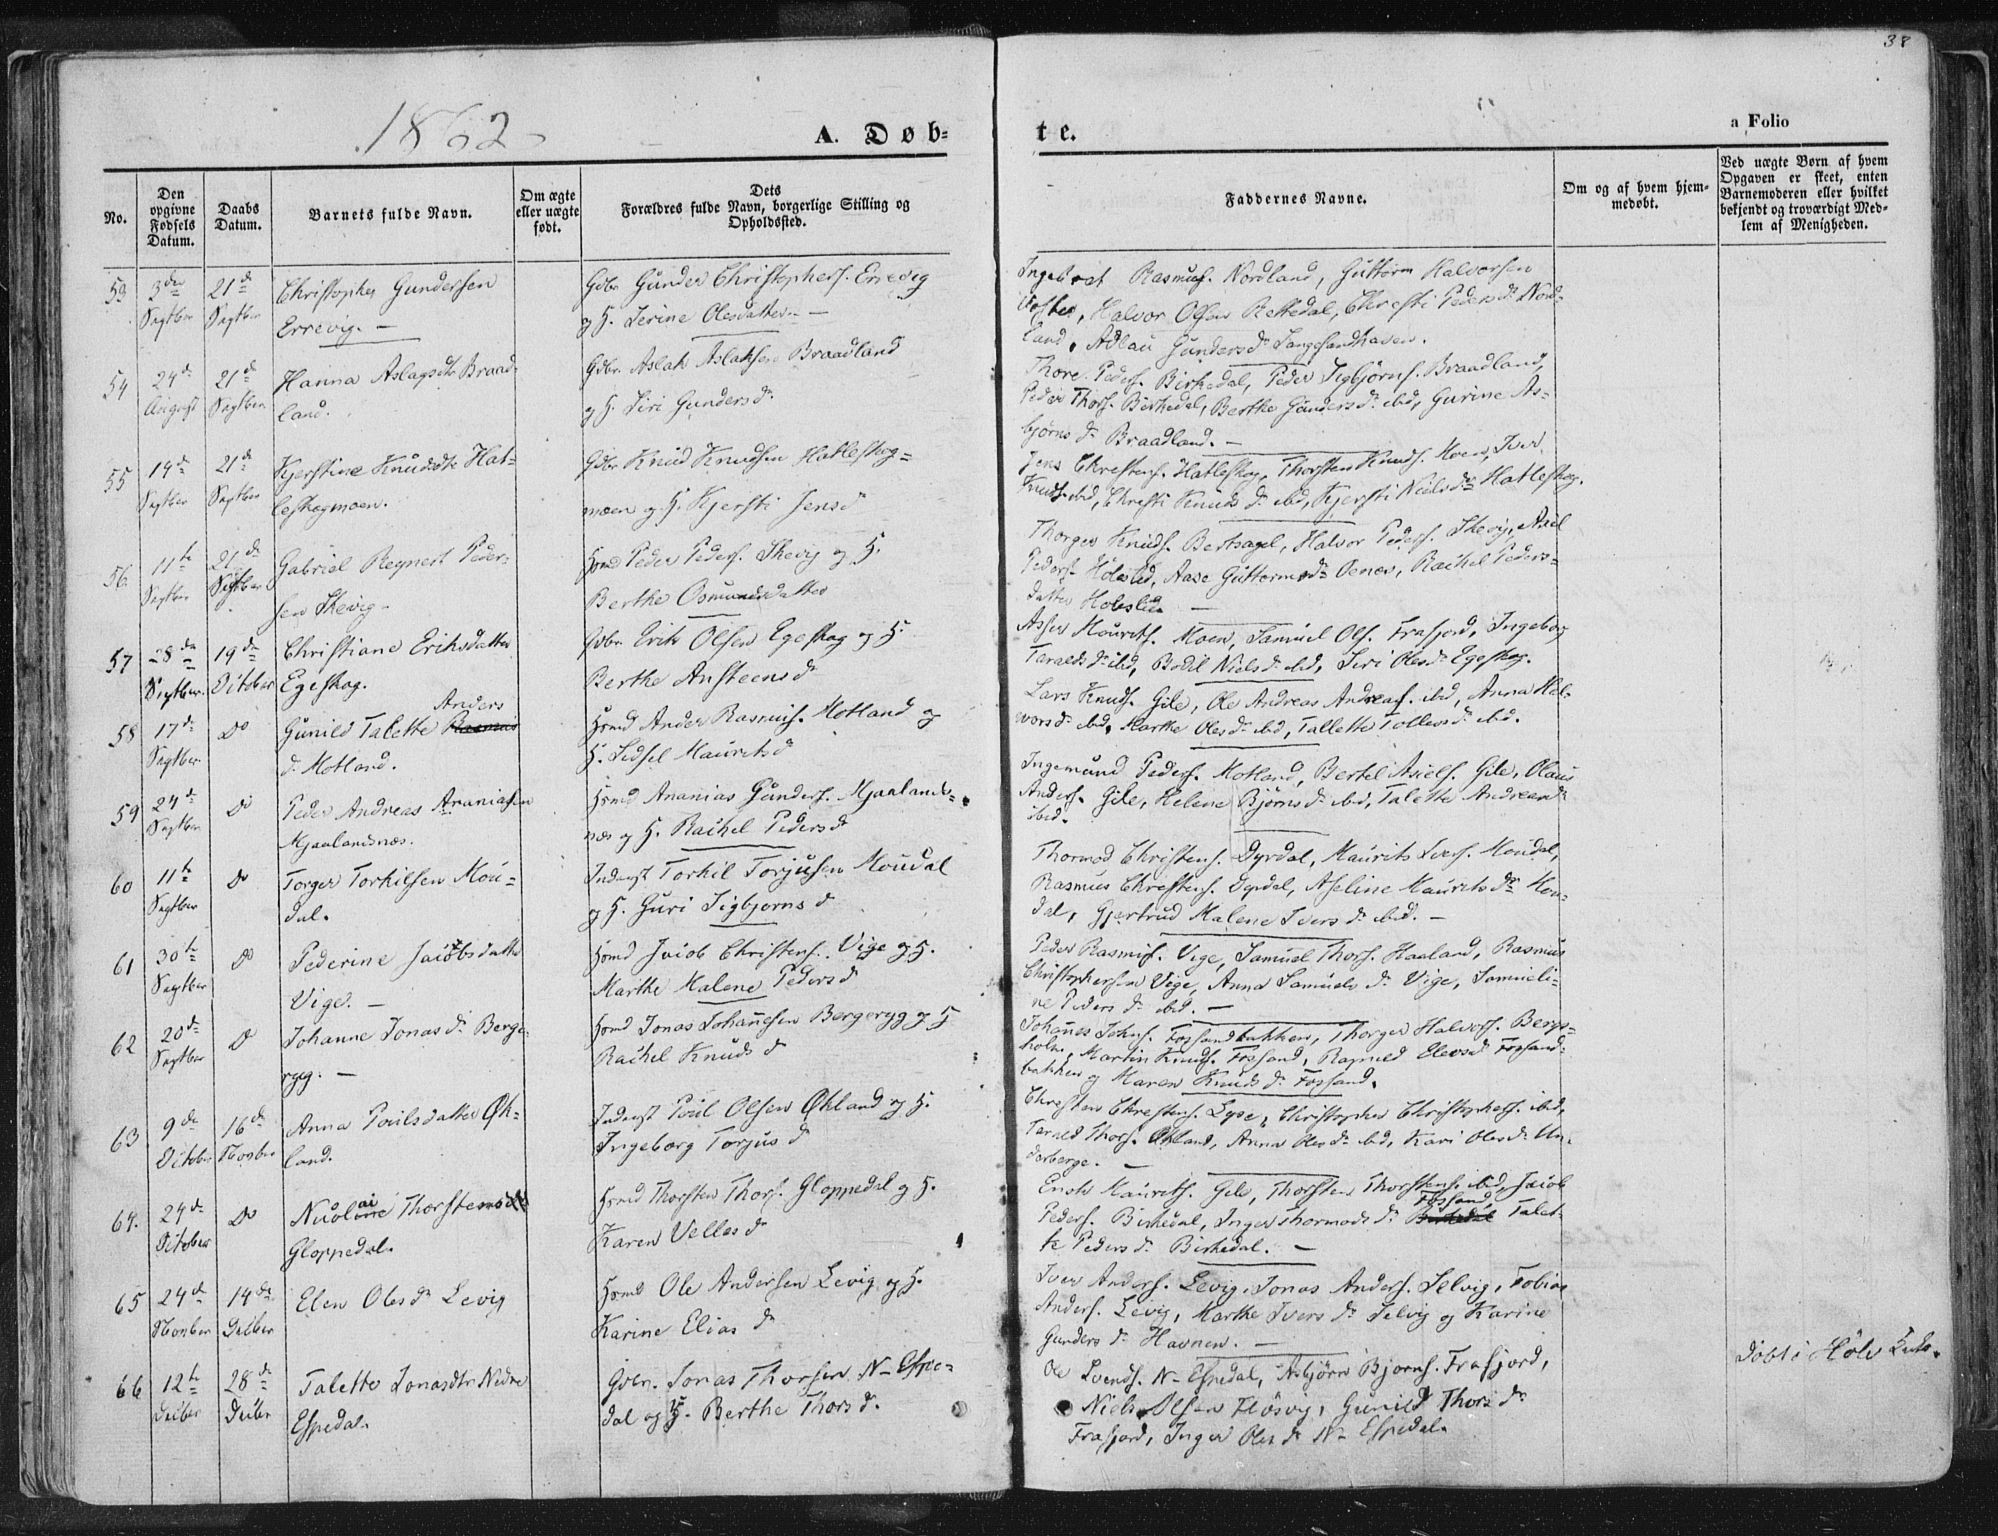 38
1862
A. Døb-
te.
a Folio
No.
Den opgivne Fødsels Datum.
Daabs Datum.
Barnets fulde Navn.
Om ægte eller uægte født.
Dets Forældres fulde Navn, borgerlige Stilling og Opholdssted.
Faddernes Navne.
Om og af hvem hjemmedøbt.
Ved uægte Børn af hvem Opgaven er skeet, enten Barnemoderen eller hvilket bekjendt og troværdigt Medlem af Menigheden.
53
3de Septber
21de Septber
Christopher Gundersen
Errevig. —
Gdbr Gunder Christophers. Errevig
og H. Serine Olesdatter —
Rasmus. Nordland, Guttorm Halvorsen
Halvor Olsen Rettedal, Christi Pedersdr Nord-
land, Adlau Gundersdr Langesandhavn.
54
24de August
21de Septber
Hanna Aslagsdtr Braad-
land.
Gdbr. Aslak Aslaksen Braadland
og H. Siri Gundersdr
Thore Peders. Birkedal, Peder Sigbjørns. Braadland,
Peder Thors. Birkedal, Berthe Gundersdr ibid, Gurine As-
bjørnsdr Braadland. —
55
14de Septber
21de Septber
Kjerstine Knudsdtr Hat-
leskogmoen.
Gdbr Knud Knudsen Hatleskog-
moen og H. Kjersti Jensdr
Jens Christens. Hatleskog, Thorsten Knuds. Moen, Iver
Knuds. ibid, Christi Knudsdr ibid, Kjersti Nielsdr Hatleskog.
56
11te Septber
21de Septber
Gabriel Reynert Peder-
sen Skevig.
Hsmd Peder Peders. Skevig og H.
Berthe Osmundsdatter
Thorger Knuds. Bertsagel, Halvor Peders. Skevig, Axel
Peders. Holeslid, Aase Guttormsdr Oenes, Rachel Peders-
datter Holeslid. —
57
28de Septber.
19de October
Christiane Eriksdatter
Egeskog.
Gdbr. Erik Olsen Egeskog og H.
Berthe Ansteensdr
Asser Mourits. Moen, Samuel Ols. Frafjord, Ingeborg
Taraldsdr ibid, Bodil Nielsdr ibid, Siri Olesdr Egeskog.
58
17de Septber
Do
Anders
Gunild Talette Rasmus
dr Motland.
Hsmd Ander Rasmus. Motland og
H. Sidsel Mauritsdr
Lars Knuds. Gile, Ole Andreas Andreas. ibid, Anna Hal-
vorsdr ibid, Marthe Olesdr ibid, Tallette Tollevsdr ibid.
59
24de Septber
Do
Peder Andreas Ananiasen
Mjaalandsnæs.
Hsmd Ananias Gunders. Mjaalands-
næs og H. Rachel Pedersdr
Ingemund Peders. Motland, Bertel Axels. Gile, Olaus
Anders. Gile, Helene Bjørnsdr ibid, Talette Andreasdr
ibid.
60
11te Septber
Do
Torger Torkilsen Mou-
dal.
Inderst Torkil Torjusen Moudal
og H. Guri Sigbjørnsdr
Thormod Christens. Dyrdal, Maurits Ivers. Moudal,
Rasmus Christens. Dyrdal, Aseline Mauritsdr Mou-
dal, Gjertrud Malene Iversdr ibid. —
61
30te Septber
Do
Pederine Jacobsdatter
Vige. —
Hsmd Jacob Christens. Vige og H.
Marthe Malene Pedersdr
Peder Rasmus. Vige, Samuel Thors. Haaland, Rasmus
Christophersen Vige, Anna Samuelsdr Vige, Samueli-
ne Pedersdr ibid. —
62
20de Septber
Do
Johanne Jonasdr Berge-
ryg. —
Hsmd Jonas Johannesen Bergeryg og H
Rachel Knudsdr
Johannes Johns. Fossandbakken, Thorger Halvors. Bergs-
holm, Martin Knuds. Fossand, Ragnild Elevsdr Fossand-
bakken og Maren Knudsdr Fossand.
63
9de October
16de Novber
Anna Poulsdatter Øk-
land.
Inderst Poul Olsen Økland og H.
Ingeborg Torjusdr
Christen Christens. Lyse, Christopher Christophers. ibid,
Tarald Thors. Økland, Anna Olesdr ibid, Kari Olesdr Un-
derberge. —
64.
24de October
Do
Nicolaine Thorstensdtr
Gloppedal.
Hsmd Thorsten Thors. Gloppedal og H.
Karen Vellesdr
Enok Maurits. Gile, Thorsten Thorstens. ibid, Jacob
Peders. Birkedal, Inger Thormodsdr Birkedal Fossand, Talet-
te Pedersdr Birkedal. —
65
24de Novber
14de Decber
Elen Olesdr Levig
Hsmd Ole Andersen Levig og H.
Karine Eliasdr
Iver Anders. Levig, Jonas Anders. Selvig, Tobias
Anders. Levig, Marthe Iversdr Selvig og Karine
Gundersdr Havnen. —
66
12te Decber
28de Decber
Talette Jonasdtr Nedre
Espedal.
Gdbr. Jonas Thorsen N- Espe-
dal og H. Berthe Thorsdr.
Ole Svends. N- Espedal, Asbjørn Bjørns. Frafjord,
Niels Olsen Fløsvig, Gunild Thorsdr
Frafjord, Inger Olesdr N- Espedal.
Døbt i Høle Kirke.